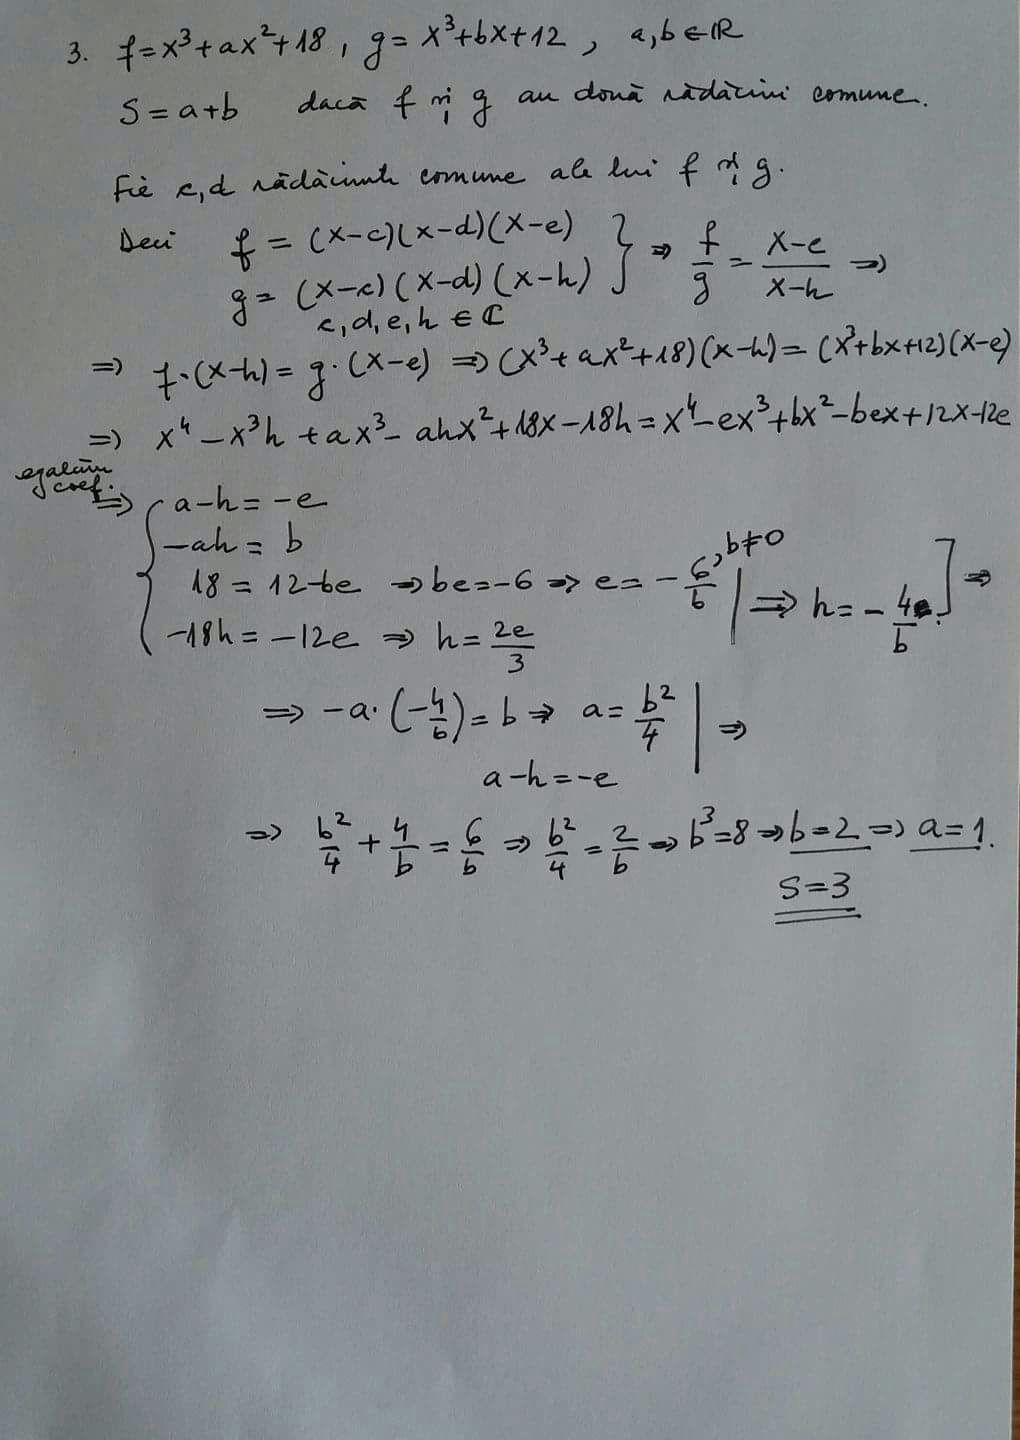 3. f=x³+ax²+18, g=x³+bx+12, a,b∈ℝ
S=a+b dacă f și g au două rădăcini comune.
Fie c,d rădăcinile comune ale lui f și g.
Deci f=(x-c)(x-d)(x-e)
g=(x-c)(x-d)(x-h) } ⇒ f/g = (x-e)/(x-h) ⇒
c,d,e,h∈ℂ
⇒ f·(x-h)=g·(x-e) ⇒ (x³+ax²+18)(x-h)=(x³+bx+12)(x-e)
⇒ x⁴-x³h+ax³-ahx²+18x-18h=x⁴-ex³+bx²-bex+12x-12e
egalăm coef.
⇒ { a-h=-e
-ah=b
18=12-be ⇒ be=-6 ⇒ e=-6/b, b≠0 | ⇒ h=-4/b ] ⇒
-18h=-12e ⇒ h=2e/3
⇒ -a·(-4/b)=b ⇒ a=b²/4 | ⇒
a-h=-e
⇒ b²/4+4/b=6/b ⇒ b²/4=2/b ⇒ b³=8 ⇒ b=2 ⇒ a=1.
S=3